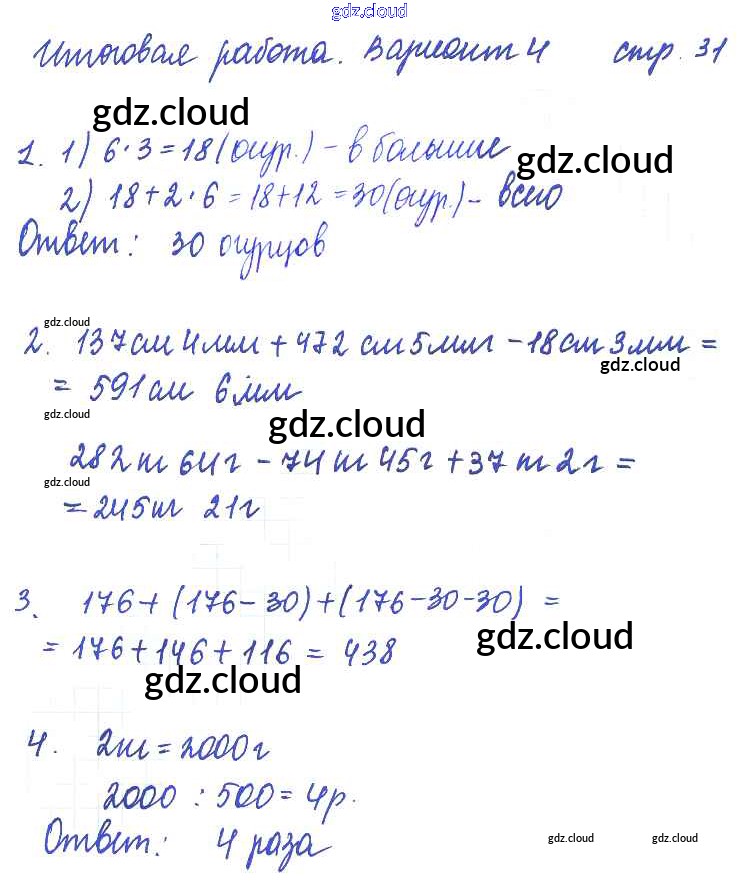 gdz.cloud
Итоговая работа. Вариант 4 стр. 31
gdz.cloud
1. 1) 6·3=18(огур.) - в больнице
gdz.cloud
2) 18+2·6=18+12=30(огур.) - всего
Ответ: 30 огурцов
gdz.cloud
2. 137см 4мм + 472 см 5мм - 18см 3мм =
gdz.cloud
= 591см 6мм
gdz.cloud
gdz.cloud
282 т 64 г - 74 т 45 г + 37 т 2 г =
gdz.cloud
= 245 т 21 г
3. 176+(176-30)+(176-30-30) =
gdz.cloud
= 176+146+116 = 438
gdz.cloud
4. 2т = 2000г
2000 : 500 = 4р.
Ответ: 4 раза
gdz.cloud gdz.cloud